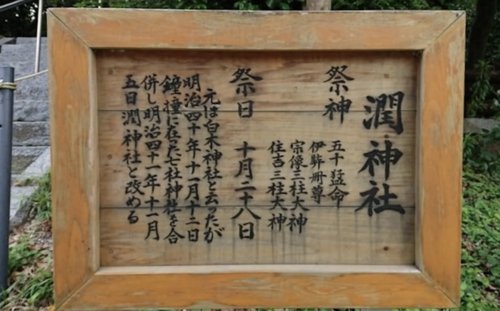 潤神社
祭神
五十猛命
伊弉冊尊
宗像三柱大神
住吉三柱大神
祭日 十月二十八日
元は白木神社と云ったが
明治四十年十一月十三日
鐘撞に在った七社神社を合
併し明治四十一年十一月
五日潤神社と改める